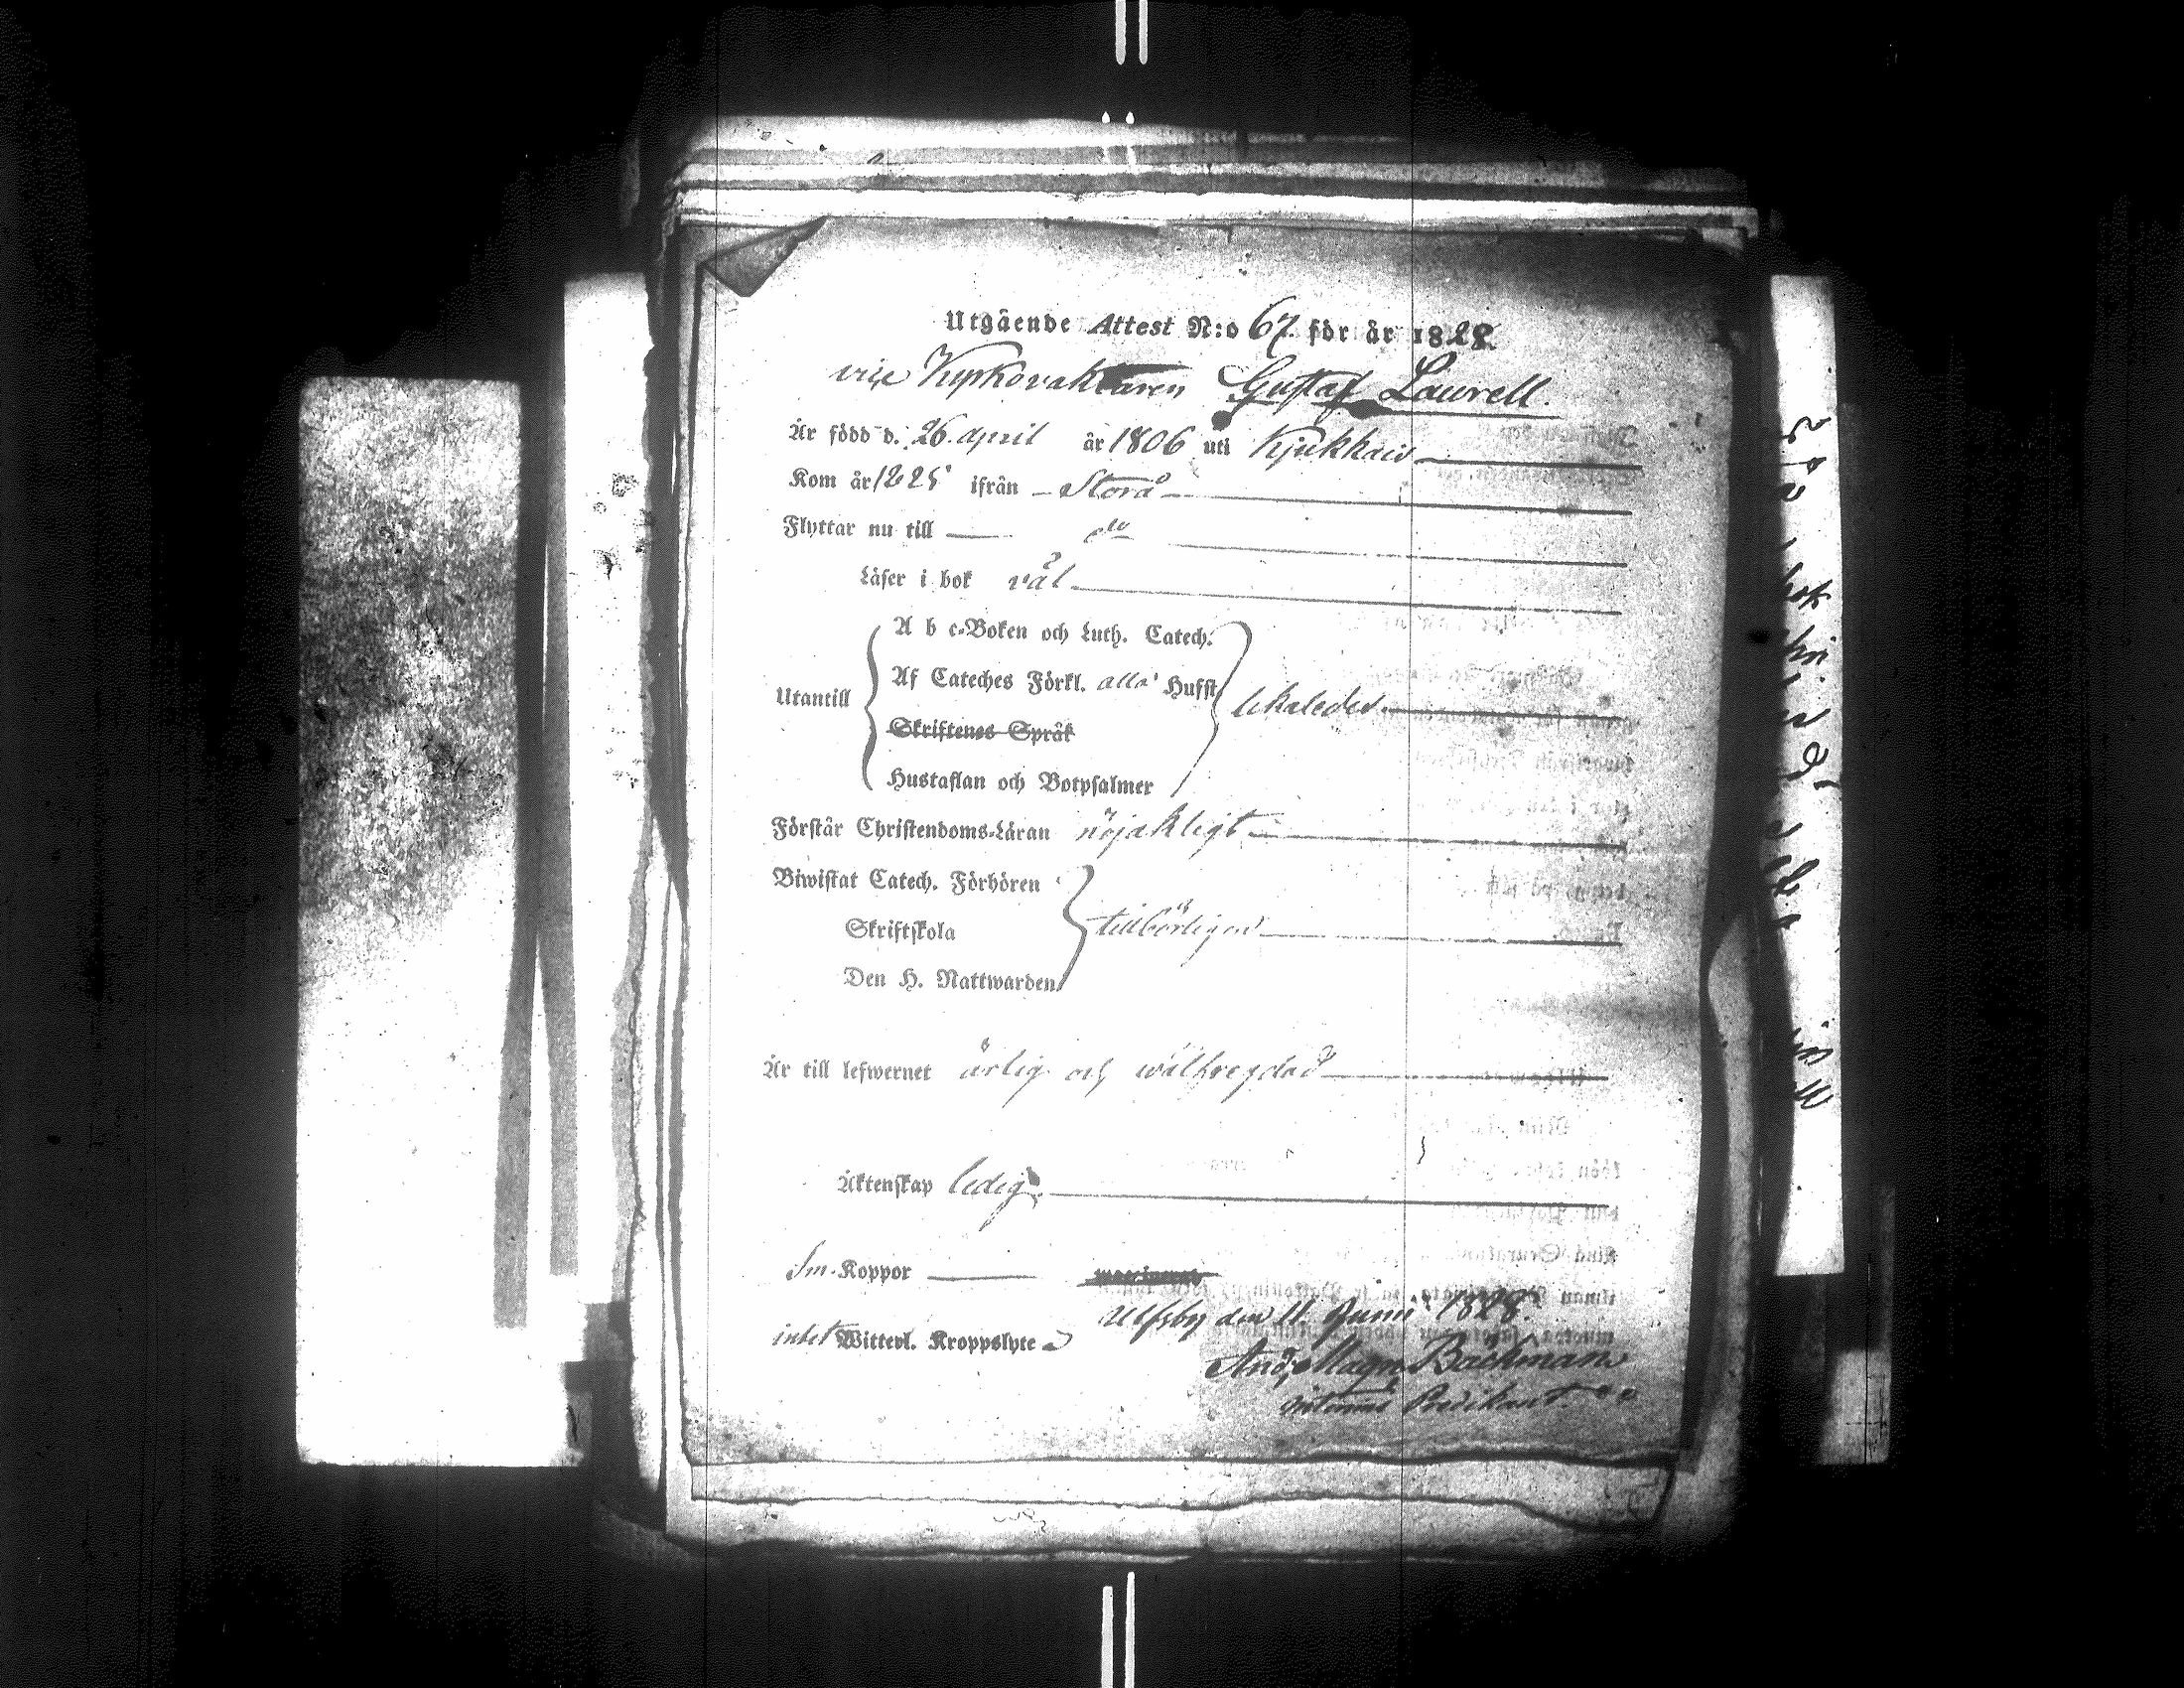 Utgående Attest N:o 67. för år 1828.
vice Kyrkovaktaren Gustaf Laurell.
Är född d. 26. april år 1806 uti Kjukkais
Kom år 1825 ifrån Storå
Flyttar nu till do
Läser i bok väl
A b c-Boken och Luth. Catech.
Af Cateches Förkl. alla Hufst.
Utantill likaledes
Skriftenes Språk
Hustaflan och Botpsalmer
Förstår Christendoms-Läran nöjakligt
Biwistat Catech. Förhören
Skriftskola tillbörligen
Den H. Nattwarden
Är till lefwernet ärlig och wälfregdad
Äktenskap ledig.
Sm. Koppor
Ulfsby den 11. Junii 1828.
intet Witterl. Kroppslyte
And. Magn. Bäckman
Predikant.